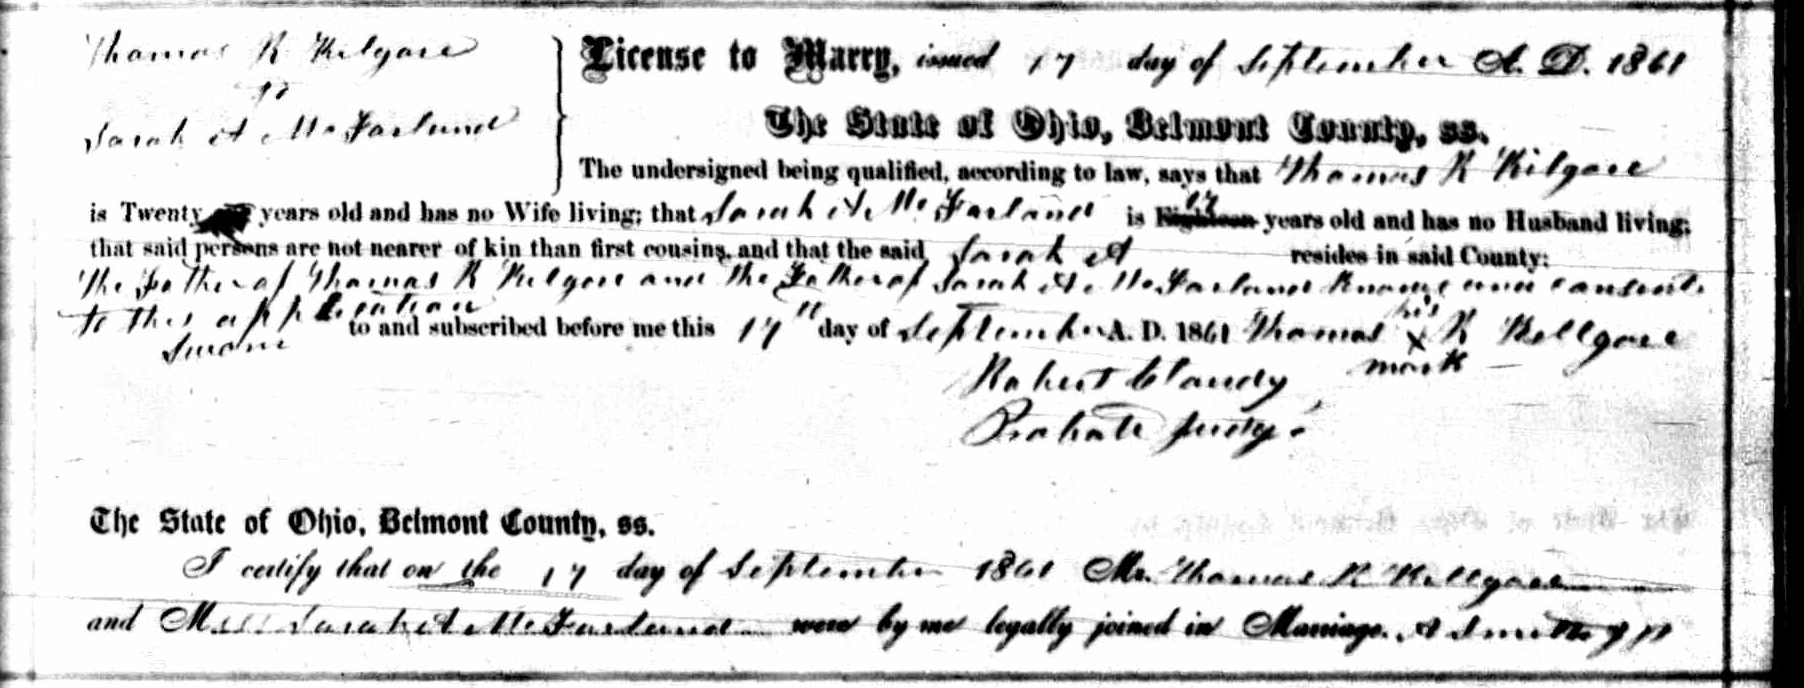 Thomas R Kilgore
To
Sarah A McFarland
License to Marry, issued 17 day of September A. D. 1861
The State of Ohio, Belmont County, ss.
The undersigned being qualified, according to law, says that Thomas R Kilgore
is Twenty years old and has no Wife living; that Sarah A McFarland is Eighteen 17 years old and has no Husband living;
that said persons are not nearer of kin than first cousins, and that the said Sarah A resides in said County;
The Father of Thomas R Kilgore and the Father of Sarah A McFarland Knows and consents
to this application
Sworn to and subscribed before me this 17th day of September A. D. 1861 Thomas his X mark R Kellgore
Robert Clandy
Probate Judge
The State of Ohio, Belmont County, ss.
I certify that on the 17 day of September 1861 Mr. Thomas R Kellgore
and Miss Sarah A McFarland were by me legally joined in Marriage. A Smith J P